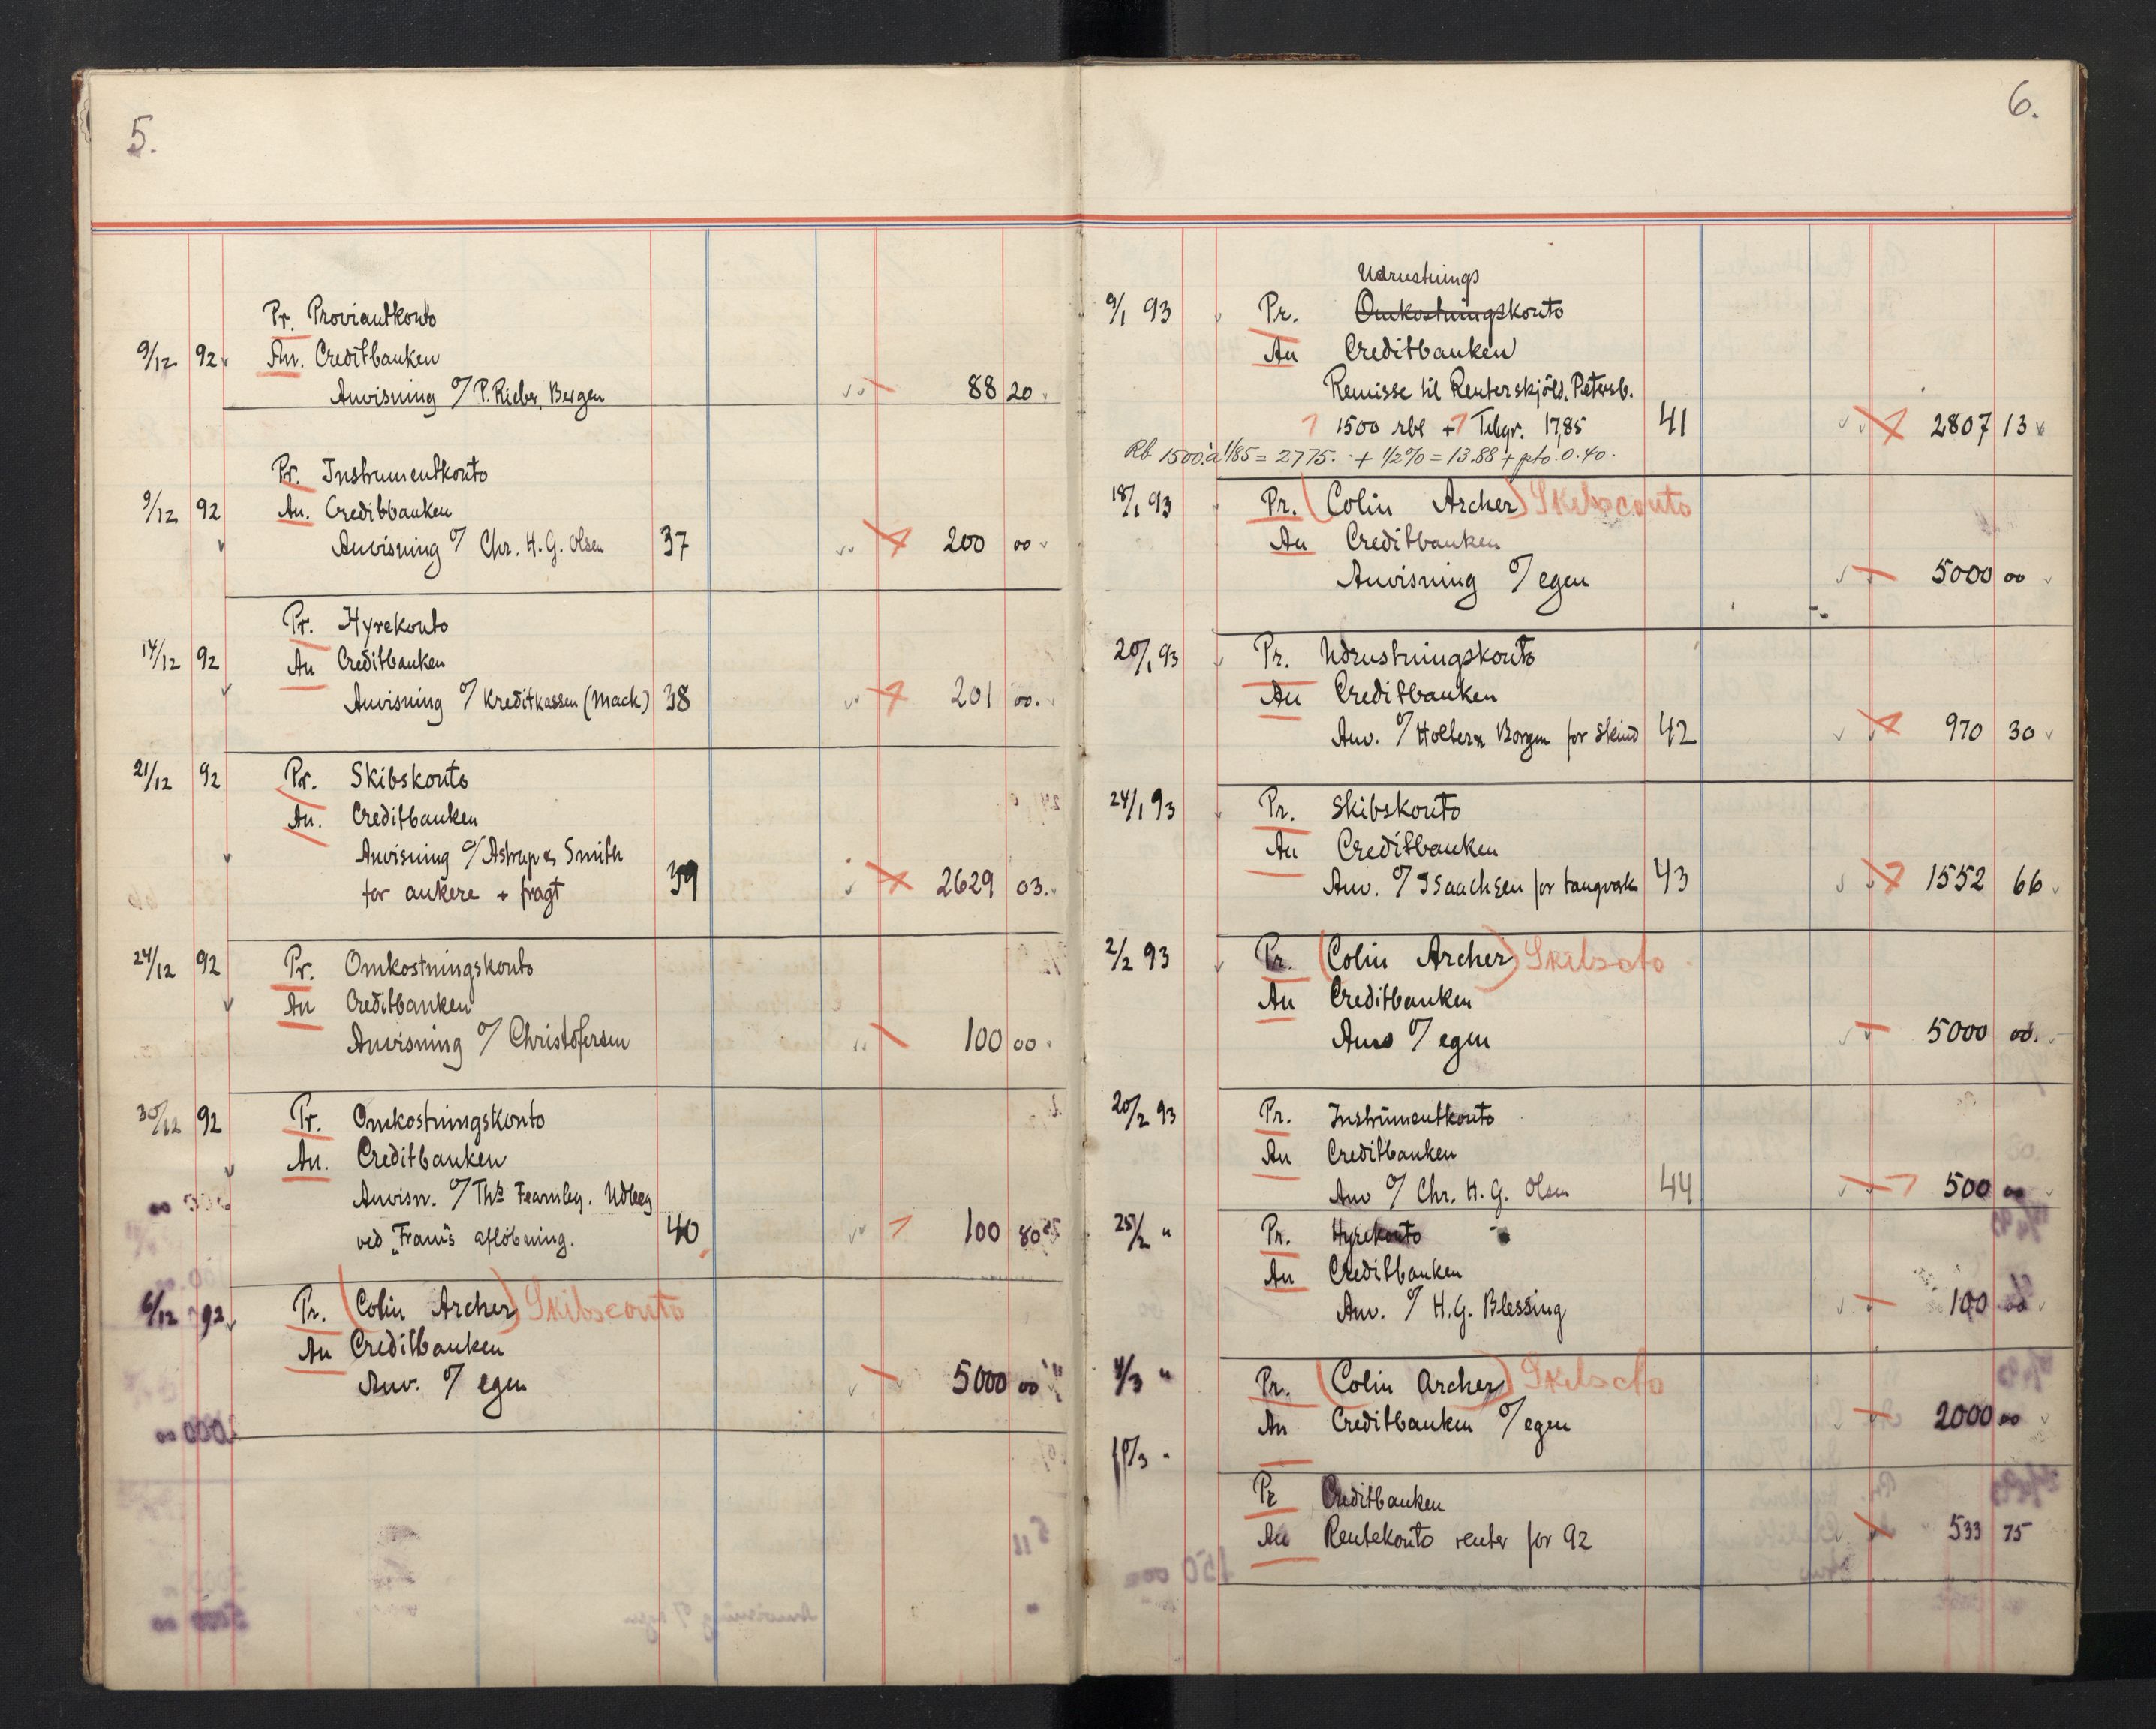 5.
Pr. Proviantkonto
9/12 92 An. Creditbanken
Anvisning % P. Rieber, Bergen 88 20
Pr. Instrumentkonto
9/12 92 An. Creditbanken
Anvisning % Chr. H. G. Olsen 37 200 00
Pr. Hyrekonto
14/12 92 An Creditbanken
Anvisning % Kreditkassen (Mack) 38 201 00.
21/12 92 Pr. Skibskonto
An. Creditbanken
Anvisning % Astrup & Smith
for ankere + fragt 39 2629 03.
24/12 92 Pr. Omkostningskonto
An Creditbanken
Anvisning % Christofersen 100 00
30/12 92 Pr. Omkostningskonto
An. Creditbanken
Anvisn. % Ths Fearnley. Udlæg
ved „Fram"s afløbning. 40 100 80
6/12 92 Pr. (Colin Archer) Skibsconto
An Creditbanken
Anv. % egen 5000 00
6.
Udrustnings
9/1 93 Pr. Omkostningskonto
An Creditbanken
Remisse til Renterskjöld. Petersb.
1500 rbl + Telegr. 17,85 41 2807 13
Rb 1500. à 1/85 = 2775. + 1/2% = 13.88 + pto. 0.40.
18/1 93 Pr. (Colin Archer) Skibsconto
An Creditbanken
Anvisning % egen 5000 00
20/1 93 Pr. Udrustningskonto
An Creditbanken
Anv. % Holter & Borgen for Skind 42 970 30
24/1 93 Pr. Skibskonto
An Creditbanken
Anv. % Isaachsen for taugverk 43 1552 66
2/2 93 Pr. (Colin Archer) Skibscto
An Creditbanken
Anv % egen 5000 00.
20/2 93 Pr. Instrumentkonto
An Creditbanken
Anv % Chr. H. G. Olsen 44 500 00
25/2 " Pr. Hyrekonto
An Creditbanken
Anv. % H. G. Blessing 100 00
4/3 " Pr. (Colin Archer) Skibscto
An Creditbanken % egen 2000 00
10/3 "
Pr Creditbanken
An Rentekonto renter for 92 533 75